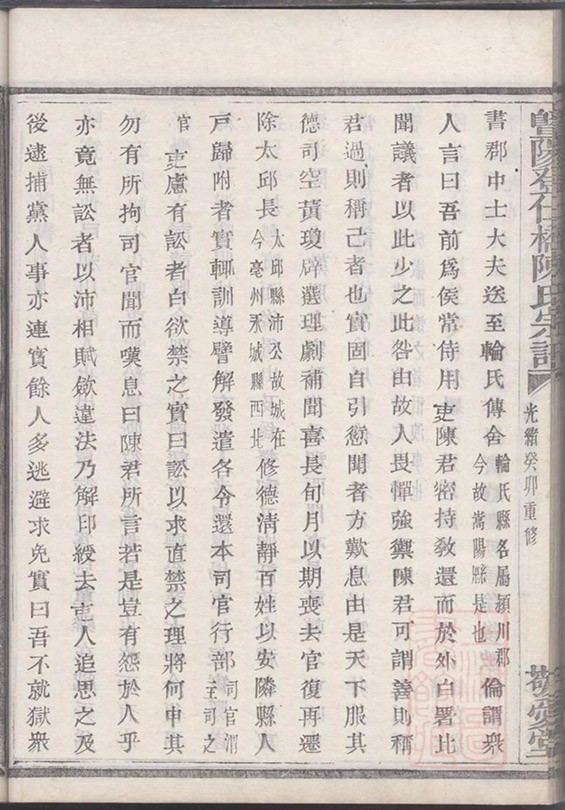 暨陽登仕橋陳氏宗譜
光緒癸卯重修
敬安堂
書郡中士大夫送至輪氏傳舍輪氏縣名屬潁川郡今故嵩陽縣是也倫謂衆
人言曰吾前爲侯常侍用吏陳君密持敎還而於外白署比
聞議者以此少之此咎由故人畏憚強禦陳君可謂善則稱
君過則稱己者也實固自引愆聞者方歎息由是天下服其
德司空黃瓊辟選理劇補聞喜長旬月以期喪去官復再遷
除太邱長太邱縣沛公故城在今亳州永城縣西北修德淸靜百姓以安隣縣人
戸歸附者實輙訓導譬解發遣各令還本司官行部司官謂主司之
官吏慮有訟者白欲禁之實曰訟以求直禁之理將何申其
勿有所拘司官聞而嘆息曰陳君所言若是豈有怨於人乎
亦竟無訟者以沛相賦歛違法乃解印綬去吏人追思之及
後逮捕黨人事亦連實餘人多逃避求免實曰吾不就獄衆